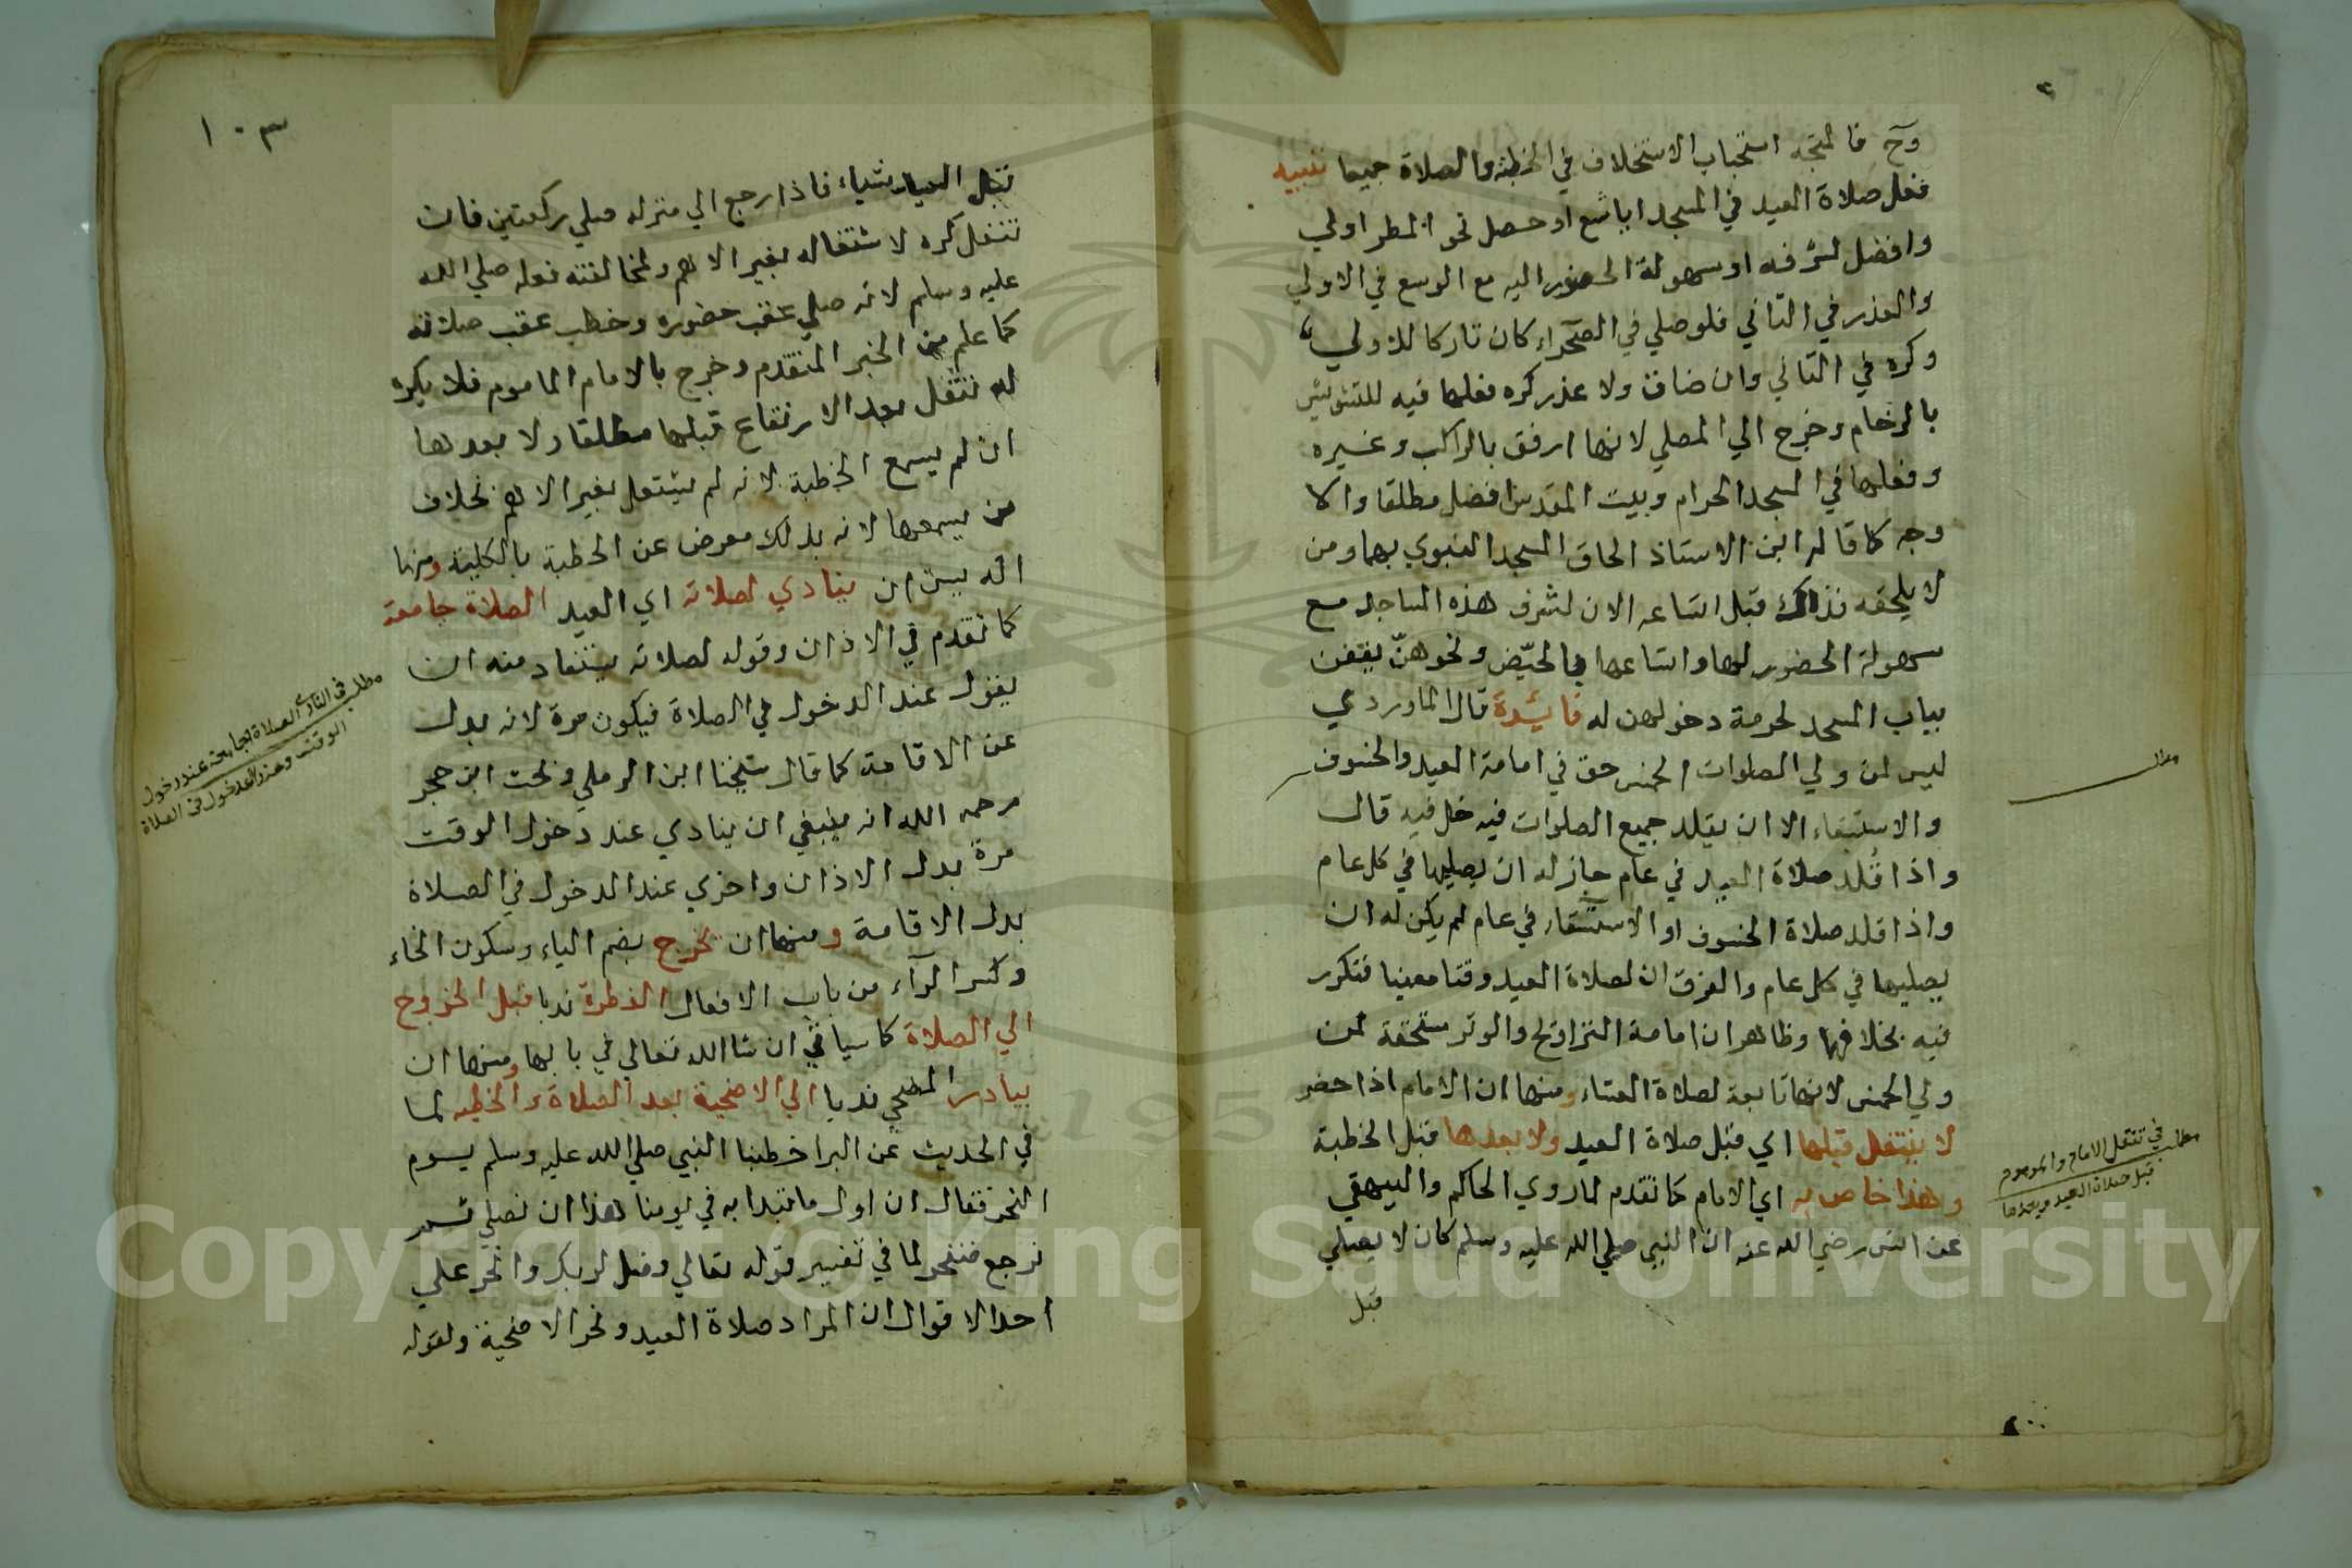 وح فالمتجه استحباب الاستخلاف في الخطبة والصلاة جميعا تنبيه
فعل صلاة العيد في المسجد اباتسع او حصل نحو المطر اولي
وافضل لشرفه او سهولة الحضور اليه مع الوسع في الاولي
والعذر في الثاني فلو صلي في الصحراء كان تاركا للاولي
وكره في الثاني وان ضاق ولا عذر كره فعلها فيه للتشويش
بالزحام وخرج الي المصلي لانها ارفق بالراكب وغيره
وفعلها في المسجد الحرام وبيت المقدس افضل مطلقا والا
وجه كما قاله ابن الاستاذ الحاق المسجد النبوي بهما ومن
لا يلحقه فذاك قبل اتساعه الان لشرف هذه المساجد مع
سهولة الحضور لها واتساعها فالحيّض ونحوهنّ يقفن
بباب المسجد لحرمة دخولهن له فائدة قال الماوردي
ليس لمن ولي الصلوات الخمس حق في امامة العيد والخسوف
والاستسقاء الا ان يقلد جميع الصلوات فيدخل فيه قال
واذا قُلد صلاة العيد في عام جاز له ان يصليها في كل عام
واذا قلد صلاة الخسوف او الاستسقاء في عام لم يكن له ان
يصليها في كل عام والفرق ان لصلاة العيد وقتا معينا فتكرر
فيه بخلافهما وظاهر ان امامة التراويح والوتر مستحقة لمن
ولي الخمس لانها تابعة لصلاة العشاء ومنها ان الامام اذا حضر
لا يتنفل قبلها اي قبل صلاة العيد ولا بعدها قبل الخطبة
وهذا خاص به اي الامام كما تقدم لما روي الحاكم والبيهقي
عن انس رضي الله عنه ان النبي صلي الله عليه وسلم كان لا يصلي
قبل
مطلب
مطلب في تنفل الامام والماموم
قبل صلاة العيد وبعدها
١٠٣
قبل العيد شياء فاذا رجع الي منزله صلي ركعتين فان
تنفل كره لاشتغاله بغير الاهم ولمخالفته فعله صلي الله
عليه وسلم لانه صلي عقب حضوره وخطب عقب صلاته
كما علم من الخبر المتقدم وخرج بالامام الماموم فلا يكره
له تنفل بعد الارتفاع قبلها مطلقا ولا بعدها
ان لم يسمع الخطبة لانه لم يشتغل بغير الاهم بخلاف
من يسمعها لانه بذلك معرض عن الخطبة بالكلية ومنها
انه يسن ان ينادي لصلاته اي العيد الصلاة جامعة
كما تقدم في الاذان وقوله لصلاته يستفاد منه ان
يقول عند الدخول في الصلاة فيكون مرة لانه بدل
عن الاقامة كما قال شيخنا ابن الرملي وبحث ابن حجر
رحمه الله انه ينبغي ان ينادي عند دخول الوقت
مرة بدل الاذان واخري عند الدخول في الصلاة
بدل الاقامة ومنها ان يخرج بضم الياء وسكون الخاء
وكسر الراء من باب الافعال الفطرة ندبا قبل الخروج
الي الصلاة كما سياتي ان شا الله تعالي في بابها ومنها ان
يبادر المضحي ندبا الي الاضحية بعد الصلاة والخطبه لما
في الحديث عن البرا خطبنا النبي صلي الله عليه وسلم يوم
النحر فقال ان اول ما نبدا به في يومنا هذا ان نصلي ثم
نرجع فننحر لما في تفسير قوله تعالي وفصل لربك وانحر علي
احد الاقوال ان المراد صلاة العيد ونحر الاضحية ولقوله
مطلب في النداء الصلاة جامعة عند دخول
الوقت وعند الدخول في الصلاة
Copyright © King Saud University
1957